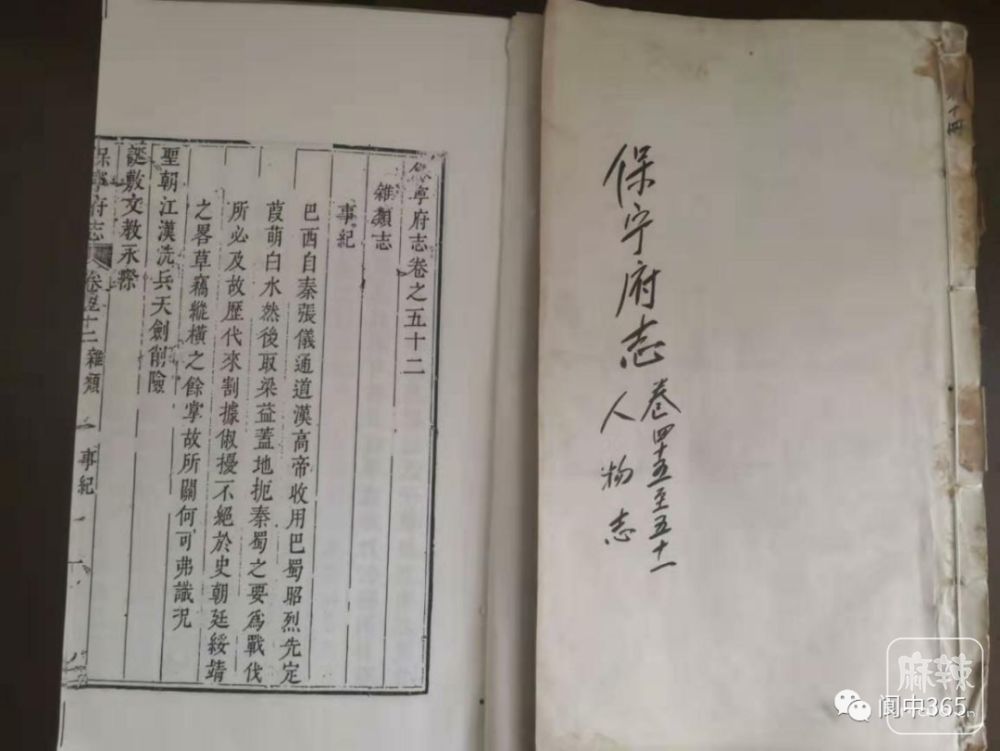 保寧府志卷之五十二
雜類志
事紀
巴西自秦張儀通道漢高帝收用巴蜀昭烈先定
葭萌白水然後取梁益蓋地扼秦蜀之要爲戰伐
所必及故歷代來割據俶擾不絕於史朝廷綏靖
之畧草竊縱橫之餘掌故所關何可弗識況
聖朝江漢洗兵天劍削險
誕敷文教永
保寧府志
卷五十二 雜類
事紀
一
下冊
保宁府志
卷四十五至五十一
人物志
麻辣
阆中365